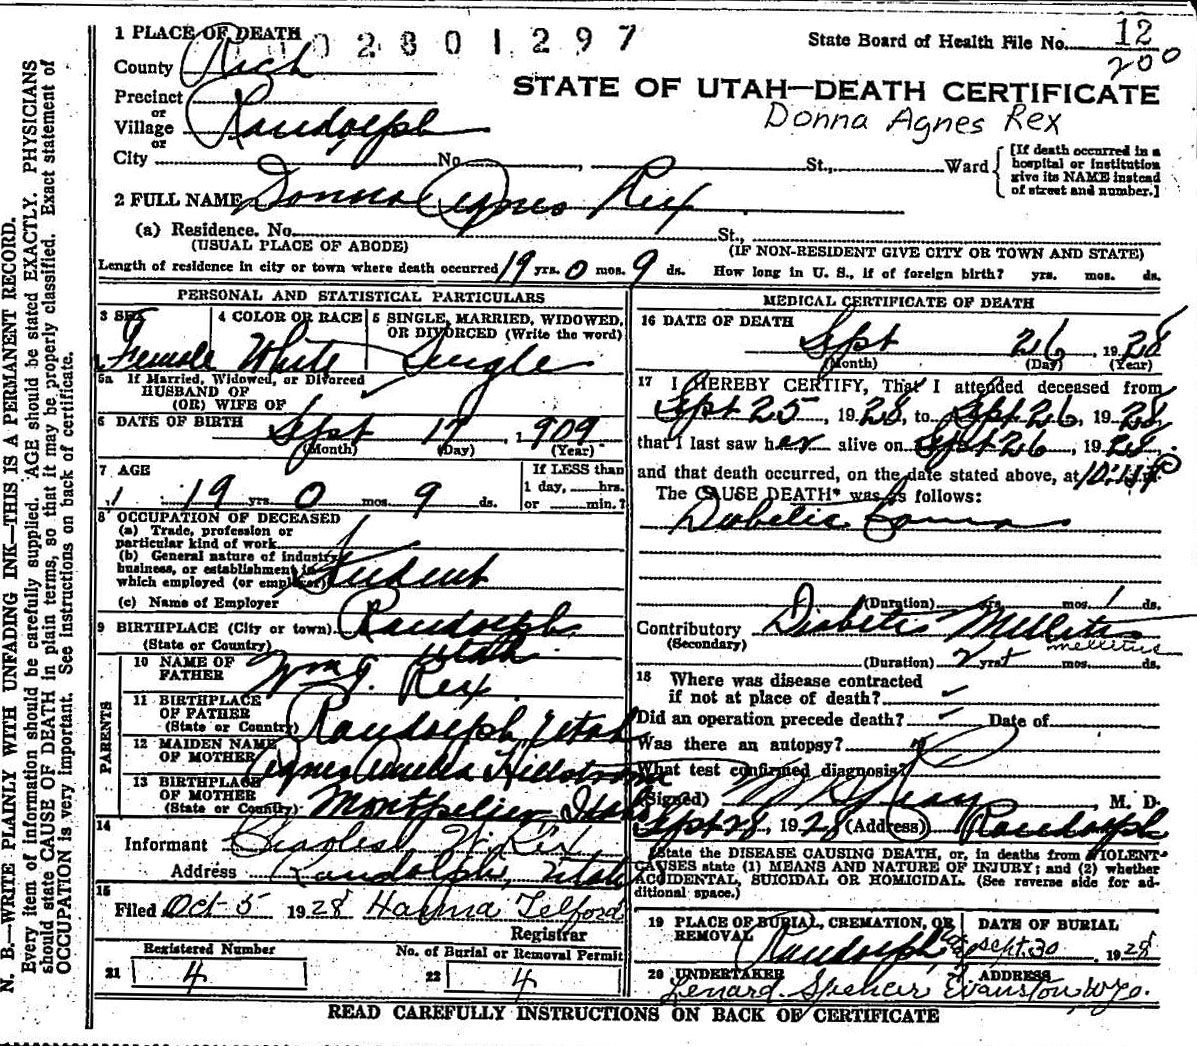 1 PLACE OF DEATH
002801297
State Board of Health File No. 12
200
County Rich
STATE OF UTAH—DEATH CERTIFICATE
Precinct
or
Village Randolph
or
Donna Agnes Rex
City No. , St., Ward
[If death occurred in a
hospital or institution
give its NAME instead
of street and number.]
2 FULL NAME Donna Agnes Rex
(a) Residence. No. St.,
(USUAL PLACE OF ABODE) (IF NON-RESIDENT GIVE CITY OR TOWN AND STATE)
Length of residence in city or town where death occurred 19 yrs. 0 mos. 9 ds. How long in U. S., if of foreign birth? yrs. mos. ds.
PERSONAL AND STATISTICAL PARTICULARS
3 SEX 4 COLOR OR RACE 5 SINGLE, MARRIED, WIDOWED,
OR DIVORCED (Write the word)
F
Female White Single
5a If Married, Widowed, or Divorced
HUSBAND OF
(OR) WIFE OF
6 DATE OF BIRTH Sept 17, 1909
(Month) (Day) (Year)
7 AGE If LESS than
1 day, hrs.
or min.?
19 yrs. 0 mos. 9 ds.
8 OCCUPATION OF DECEASED
(a) Trade, profession or
particular kind of work
(b) General nature of industry,
business, or establishment in
which employed (or employer) Student
(c) Name of Employer
9 BIRTHPLACE (City or town) Randolph
(State or Country) Utah
PARENTS
10 NAME OF
FATHER Wm J. Rex
11 BIRTHPLACE
OF FATHER
(State or Country) Randolph, Utah
12 MAIDEN NAME
OF MOTHER Agnes Amelia Hellstrom
13 BIRTHPLACE
OF MOTHER
(State or Country) Montpelier, Idaho
14
Informant Charles W. Rex
Address Randolph, Utah
15
Filed Oct 5 1928 Telford
Registrar
Registered Number No. of Burial or Removal Permit
21 4 22 4
MEDICAL CERTIFICATE OF DEATH
16 DATE OF DEATH
Sept 26, 1928
(Month) (Day) (Year)
17 I HEREBY CERTIFY, That I attended deceased from
Sept 25, 1928, to Sept 26, 1928,
that I last saw her alive on Sept 26, 1928,
and that death occurred, on the date stated above, at
The CAUSE DEATH* was as follows:
Diabetic Coma
(Duration) yrs. mos. 1 ds.
Contributory Diabetis Mellitis
(Secondary) mellitus
(Duration) 2 yrs. mos. ds.
18 Where was disease contracted
if not at place of death?
Did an operation precede death? Date of
Was there an autopsy?
What test confirmed diagnosis?
(Signed) , M. D.
Sept 28, 1928 (Address) Randolph
(State the DISEASE CAUSING DEATH, or, in deaths from VIOLENT
CAUSES state (1) MEANS AND NATURE OF INJURY; and (2) whether
ACCIDENTAL, SUICIDAL OR HOMICIDAL. (See reverse side for ad-
ditional space.)
19 PLACE OF BURIAL, CREMATION, OR
REMOVAL DATE OF BURIAL
Randolph Sept. 30 1928
20 UNDERTAKER ADDRESS
Lenard Spencer Evanston Wyo.
READ CAREFULLY INSTRUCTIONS ON BACK OF CERTIFICATE
N. B.—WRITE PLAINLY WITH UNFADING INK—THIS IS A PERMANENT RECORD.
Every item of information should be carefully supplied. AGE should be stated EXACTLY. PHYSICIANS
should state CAUSE OF DEATH in plain terms, so that it may be properly classified. Exact statement of
OCCUPATION is very important. See instructions on back of certificate.